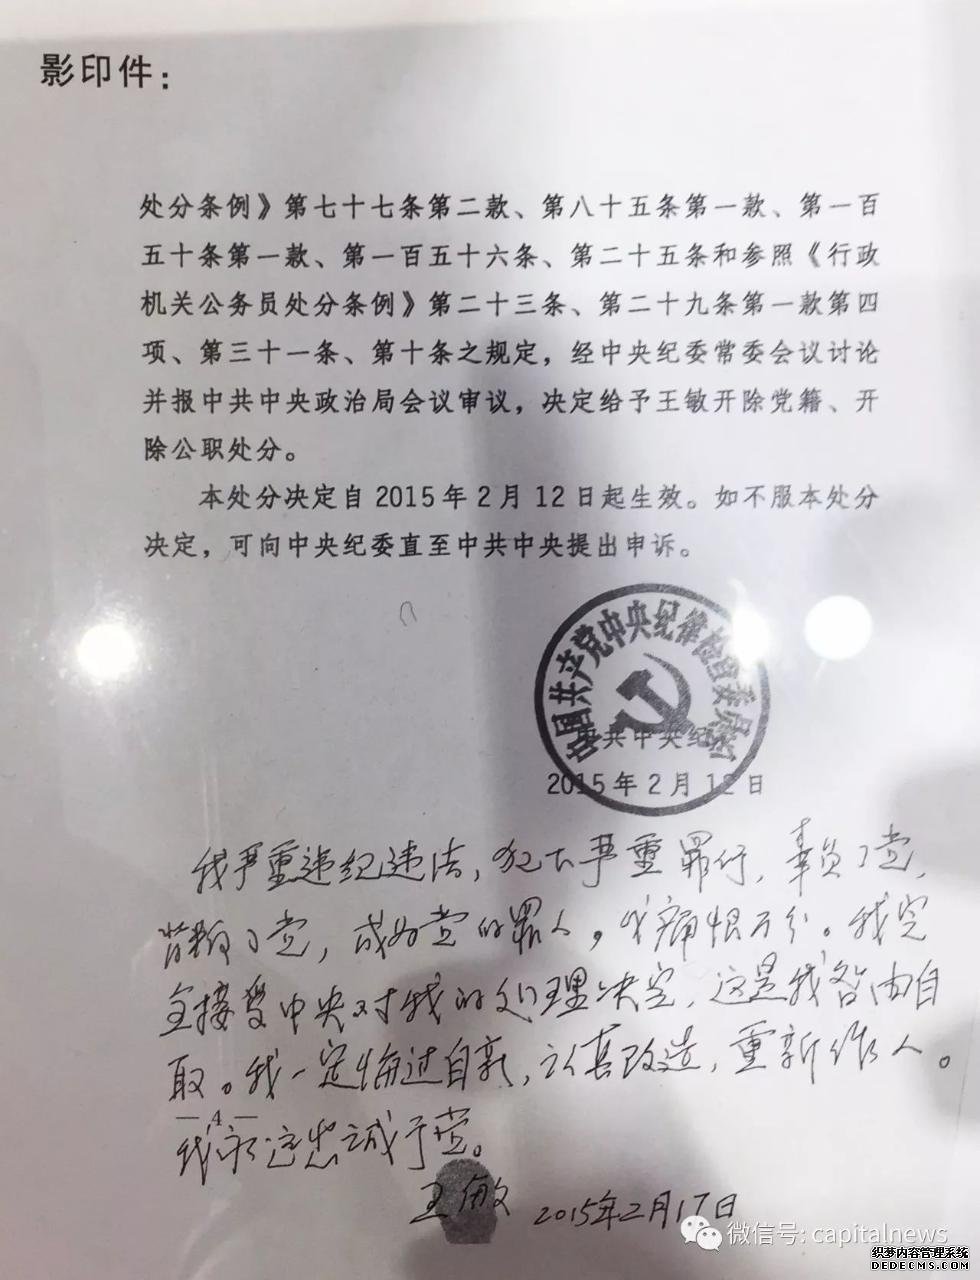 影印件：
处分条例》第七十七条第二款、第八十五条第一款、第一百
五十条第一款、第一百五十六条、第二十五条和参照《行政
机关公务员处分条例》第二十三条、第二十九条第一款第四
项、第三十一条、第十条之规定，经中央纪委常委会议讨论
并报中共中央政治局会议审议，决定给予王敏开除党籍、开
除公职处分。
本处分决定自2015年2月12日起生效。如不服本处分
决定，可向中央纪委直至中共中央提出申诉。
中国共产党中央纪律检查委员会
中共中央纪
2015年2月12日
我严重违纪违法，犯下严重罪行，辜负了党，
背叛了党，成为党的罪人。我痛恨万分。我完
全接受中央对我的处理决定，这是我咎由自
取。我一定悔过自新，认真改造，重新作人。
—4—
我永远忠诚于党。
王敏 2015年2月17日
微信号: capitalnews
织梦内容管理系统
DEDECMS.COM